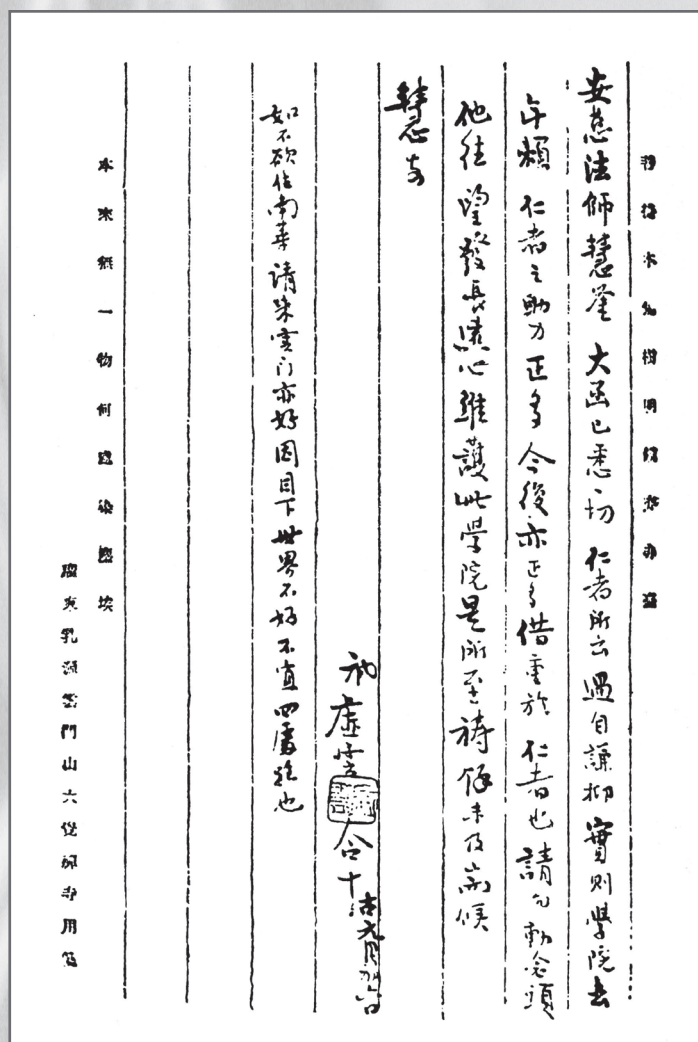 菩提本無樹明鏡亦非臺
安慈法師慧鑒 大函已悉一切 仁者所云 過自謙抑 實則學院去
年賴 仁者之助力正多 今後亦正多借重於 仁者也 請勿動念頭
他往 望發長遠心維護此學院 是所至禱 餘未及 耑候
慧安
衲虛雲合十 古六月初六日
如不欲住南華 請來雲門亦好 因目下世界不好 不宜四處跑也
本來無一物何處染塵埃
廣東乳源雲門山大覺禪寺用箋